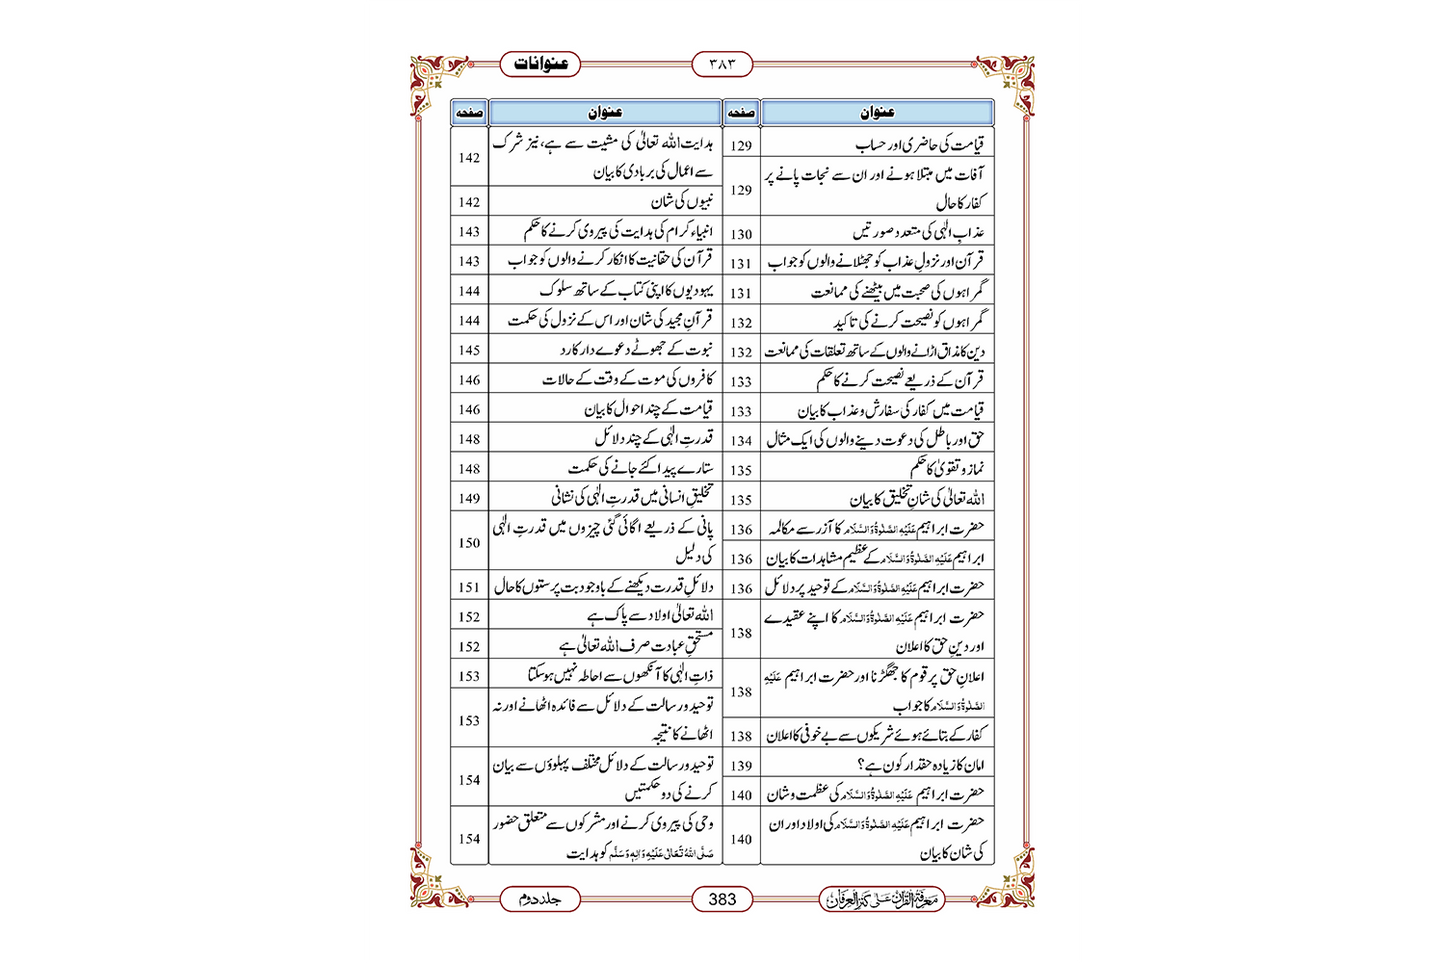 عنوانات
۳۸۳
عنوان
صفحہ
عنوان
صفحہ
قیامت کی حاضری اور حساب
129
آفات میں مبتلا ہونے اور ان سے نجات پانے پر
کفار کا حال
129
عذابِ الٰہی کی متعدد صورتیں
130
قرآن اور نزولِ عذاب کو جھٹلانے والوں کو جواب
131
گمراہوں کی صحبت میں بیٹھنے کی ممانعت
131
گمراہوں کو نصیحت کرنے کی تاکید
132
دین کا مذاق اڑانے والوں کے ساتھ تعلقات کی ممانعت
132
قرآن کے ذریعے نصیحت کرنے کا حکم
133
قیامت میں کفار کی سفارش و عذاب کا بیان
133
حق اور باطل کی دعوت دینے والوں کی ایک مثال
134
نماز و تقویٰ کا حکم
135
اللہ تعالٰی کی شانِ تخلیق کا بیان
135
حضرت ابراہیم عَلَیْہِ الصَّلٰوۃُ وَالسَّلَام کا آزر سے مکالمہ
136
ابراہیم عَلَیْہِ الصَّلٰوۃُ وَالسَّلَام کے عظیم مشاہدات کا بیان
136
حضرت ابراہیم عَلَیْہِ الصَّلٰوۃُ وَالسَّلَام کے توحید پر دلائل
136
حضرت ابراہیم عَلَیْہِ الصَّلٰوۃُ وَالسَّلَام کا اپنے عقیدے
اور دینِ حق کا اعلان
138
اعلانِ حق پر قوم کا جھگڑنا اور حضرت ابراہیم عَلَیْہِ
الصَّلٰوۃُ وَالسَّلَام کا جواب
138
کفار کے بتائے ہوئے شریکوں سے بے خوفی کا اعلان
138
امان کا زیادہ حقدار کون ہے؟
139
حضرت ابراہیم عَلَیْہِ الصَّلٰوۃُ وَالسَّلَام کی عظمت و شان
140
حضرت ابراہیم عَلَیْہِ الصَّلٰوۃُ وَالسَّلَام کی اولاد اور ان
کی شان کا بیان
140
ہدایت اللہ تعالٰی کی مشیت سے ہے، نیز شرک
سے اعمال کی بربادی کا بیان
142
نبیوں کی شان
142
انبیاء کرام کی ہدایت کی پیروی کرنے کا حکم
143
قرآن کی حقانیت کا انکار کرنے والوں کو جواب
143
یہودیوں کا اپنی کتاب کے ساتھ سلوک
144
قرآنِ مجید کی شان اور اس کے نزول کی حکمت
144
نبوت کے جھوٹے دعوے دار کا رد
145
کافروں کی موت کے وقت کے حالات
146
قیامت کے چند احوال کا بیان
146
قدرتِ الٰہی کے چند دلائل
148
ستارے پیدا کئے جانے کی حکمت
148
تخلیقِ انسانی میں قدرتِ الٰہی کی نشانی
149
پانی کے ذریعے اگائی گئی چیزوں میں قدرتِ الٰہی
کی دلیل
150
دلائلِ قدرت دیکھنے کے باوجود بت پرستوں کا حال
151
اللہ تعالٰی اولاد سے پاک ہے
152
مستحقِ عبادت صرف اللہ تعالٰی ہے
152
ذاتِ الٰہی کا آنکھوں سے احاطہ نہیں ہو سکتا
153
توحید و رسالت کے دلائل سے فائدہ اٹھانے اور نہ
اٹھانے کا نتیجہ
153
توحید و رسالت کے دلائل مختلف پہلوؤں سے بیان
کرنے کی دو حکمتیں
154
وحی کی پیروی کرنے اور مشرکوں سے متعلق حضور
صَلَّی اللہُ تَعَالٰی عَلَیْہِ وَاٰلِہٖ وَسَلَّم کو ہدایت
154
معرفۃ القرآن علی کنز العرفان
383
جلد دوم